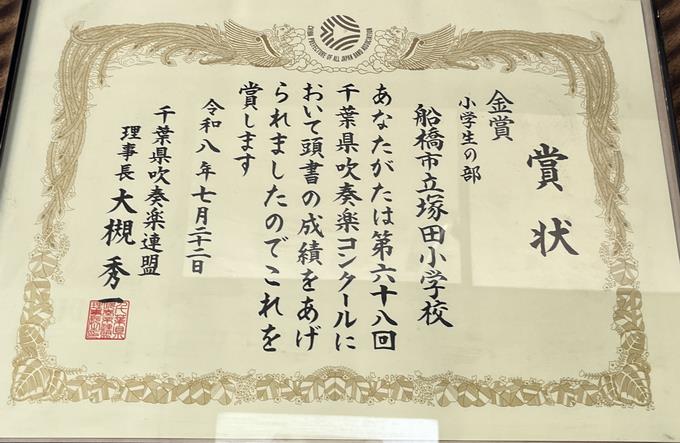 CHIBA PREFECTURE OF ALL JAPAN BAND ASSOCIATION
賞状
金賞
小学生の部
船橋市立塚田小学校
あなたがたは第六十八回
千葉県吹奏楽コンクールに
おいて頭書の成績をあげ
られましたのでこれを
賞します
令和八年七月二十二日
千葉県吹奏楽連盟
理事長 大槻秀一